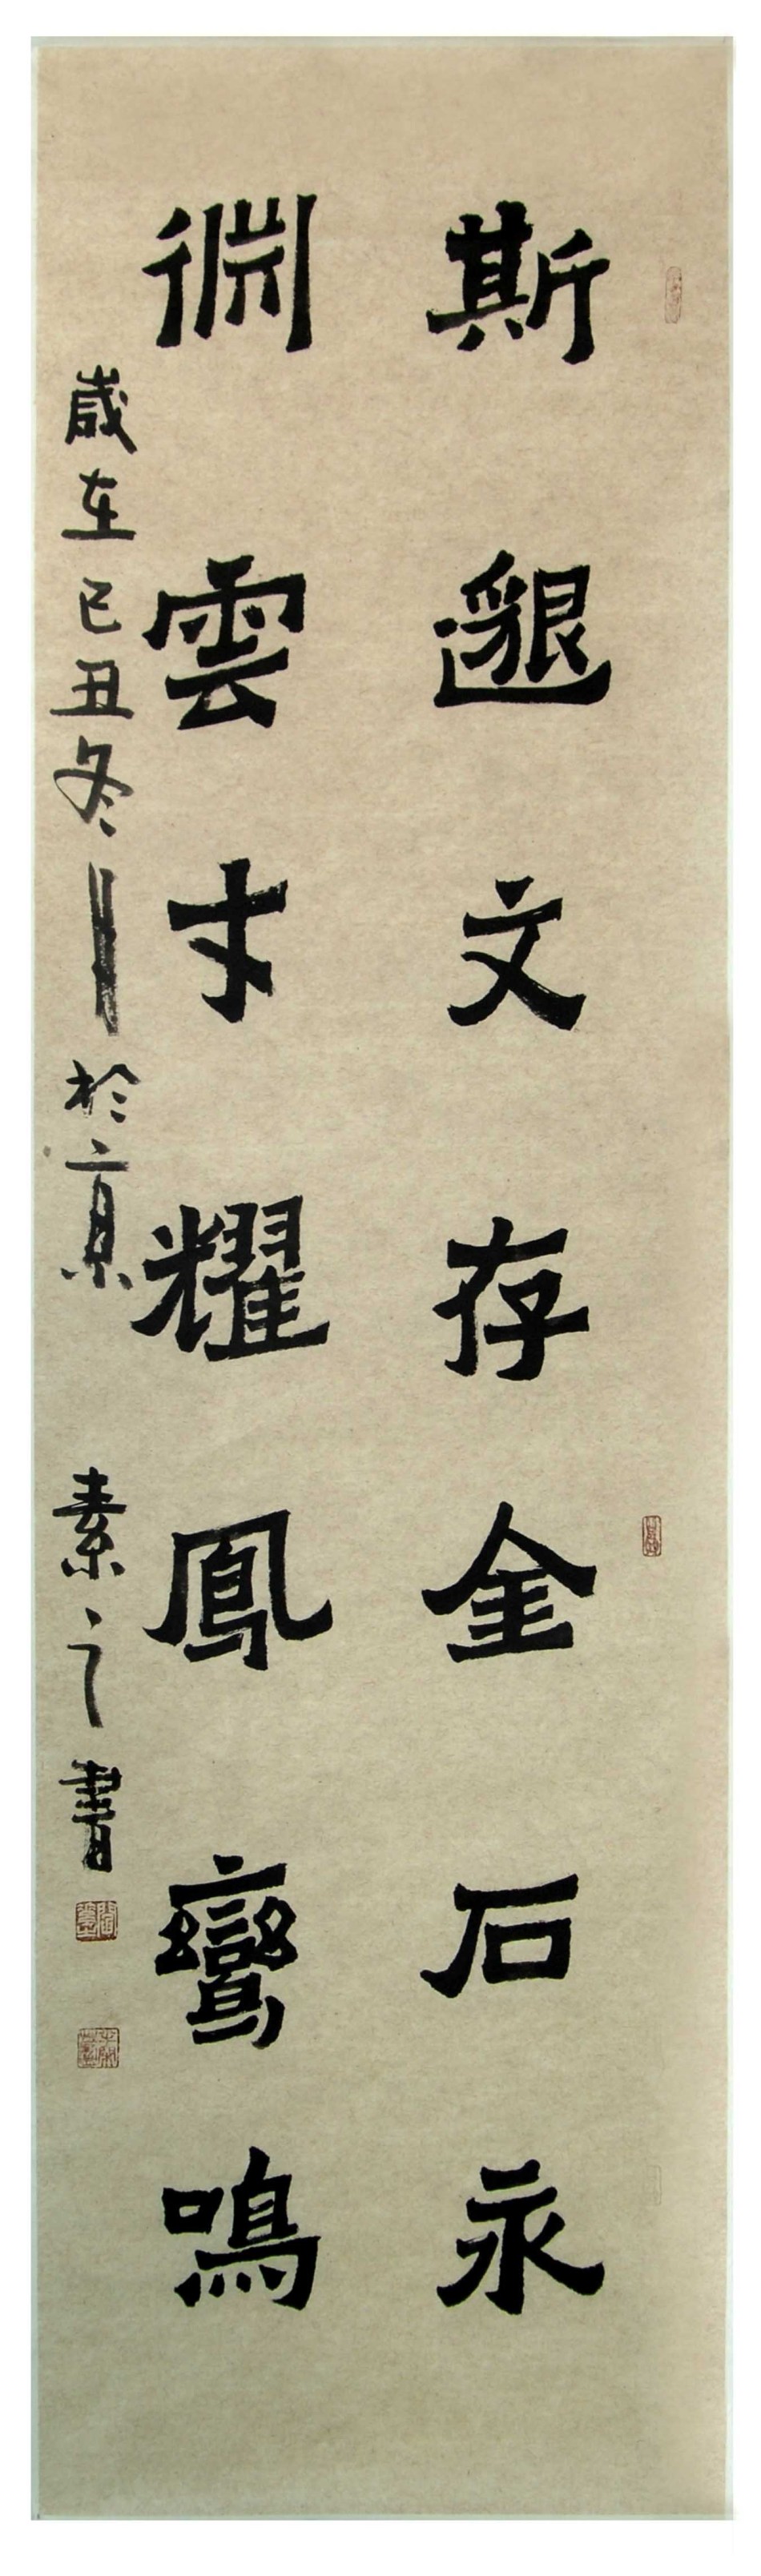 斯邈文存金石永
淵雲才耀鳳鸞鳴
歲在己丑冬於京 素之書